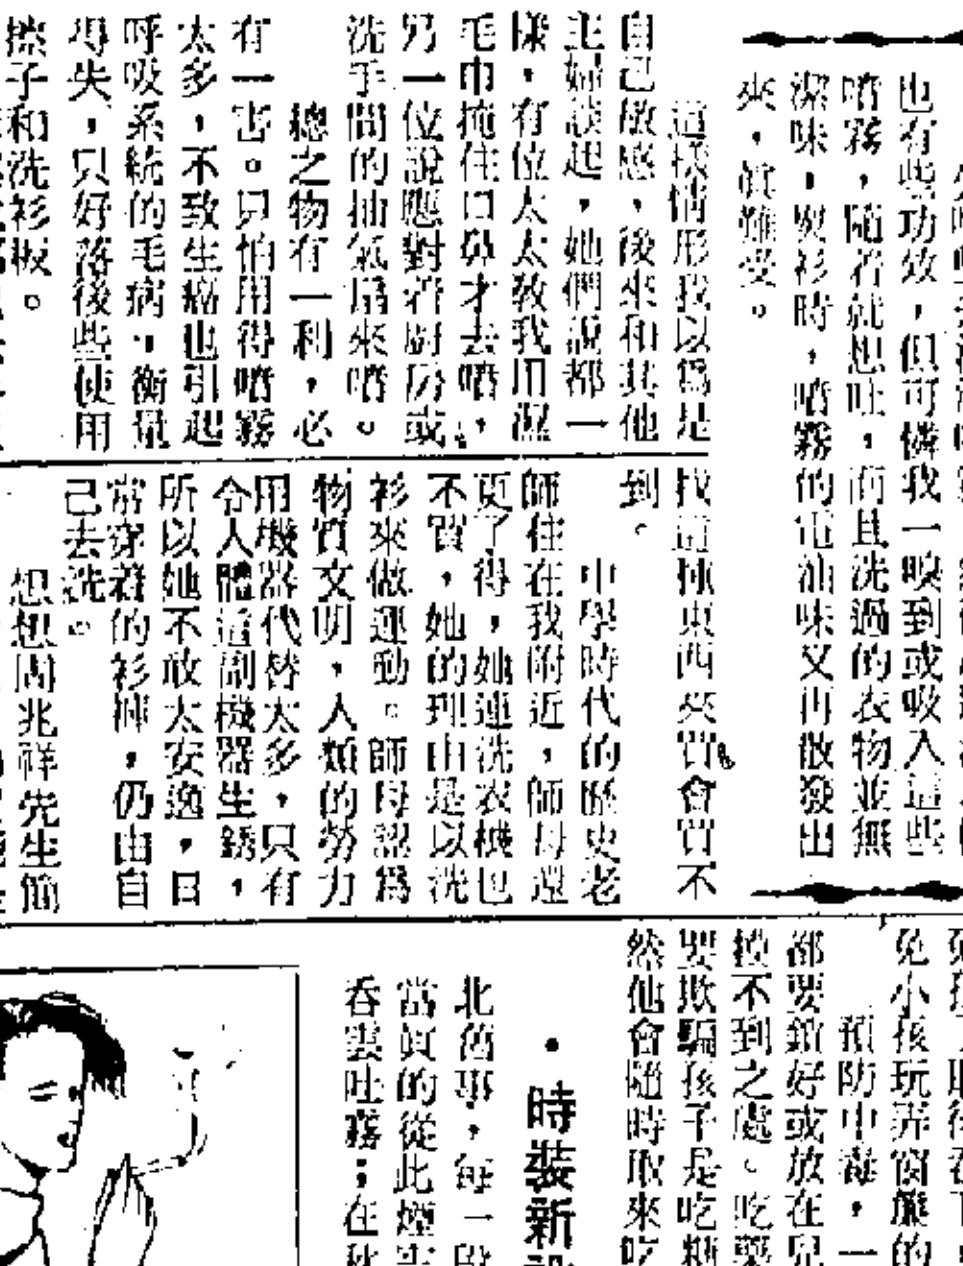 也有些功效，但可憐我一嗅到或吸入這些
噴霧，隨着就想吐，而且洗過的衣物並無
潔味，熨衫時，噴霧的電油味又再散發出
來，眞難受。
這樣情形我以爲是
自己敏感，後來和其他
主婦談起，她們說都一
樣，有位太太敎我用濕
毛巾掩住口鼻才去噴，
另一位說應對着厨房或
洗手間的抽氣扇來噴。
總之物有一利，必
有一害。只怕用得噴霧
太多，不致生癌也引起
呼吸系統的毛病，衡量
得失，只好落後些使用
擦子和洗衫板。
找這種東西來買會買不
到。
中學時代的歷史老
師住在我附近，師母還
更了得，她連洗衣機也
不買，她的理由是以洗
衫來做運動。師母認爲
物質文明，人類的勞力
用機器代替太多，只有
令人體這副機器生銹，
所以她不敢太安逸，日
常穿着的衫褲，仍由自
己去洗。
想想周兆祥先生簡
免小孩玩弄窗簾的
預防中毒，一
都要鎖好或放在兒
摸不到之處。吃藥
要欺騙孩子是吃糖
然他會隨時取來吃
•時裝新
北舊事，每一段
當眞的從此煙
吞雲吐霧；在秋